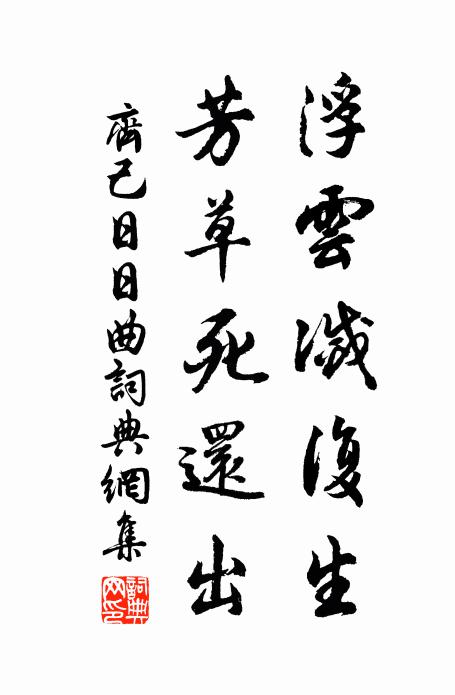 浮雲滅復生
芳草死還出
齊己日日曲詞典網集
詞典
网印